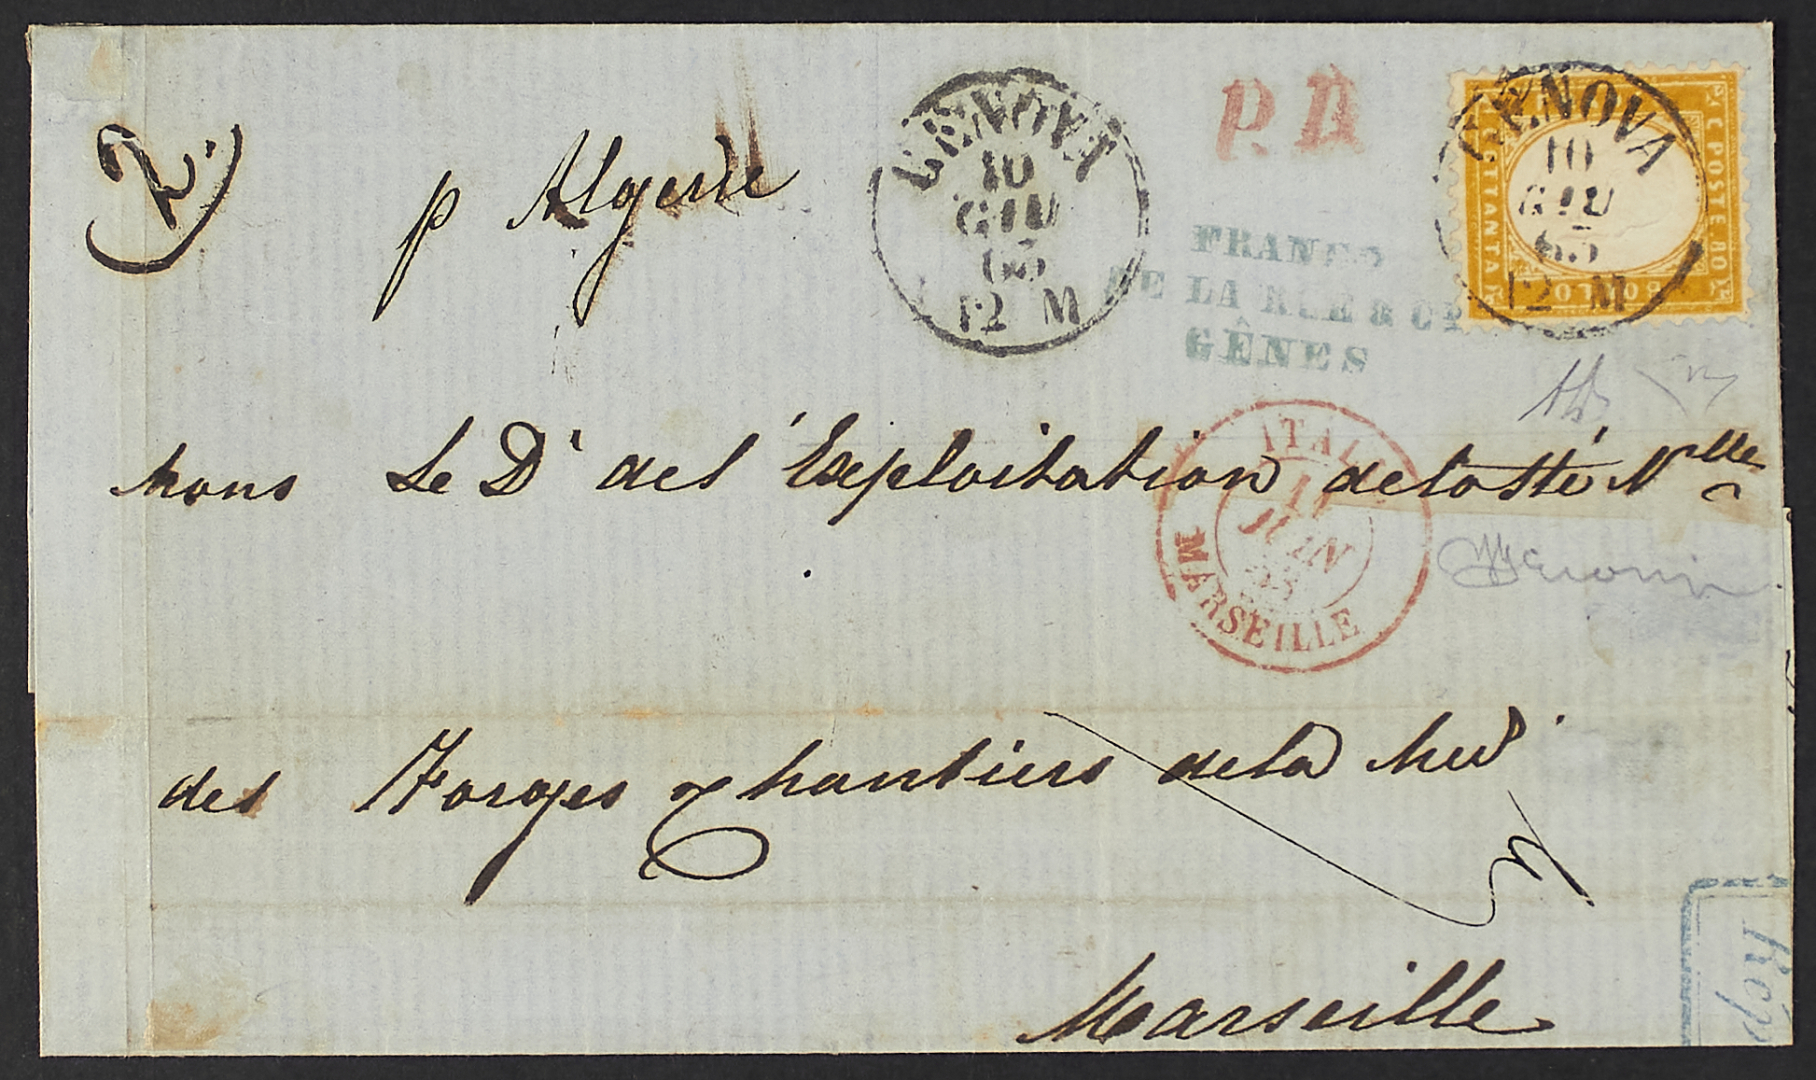 (2.)
p Algerie
GENOVA
10
GIU
63
12 M
P.D.
FRANCO
DE LA RUE & CIE
GÊNES
GENOVA
10
GIU
63
12 M
C. POSTE 80
BOLLO
OTTANTA
ITALIE
11
JUIN
63
MARSEILLE
Mons Le Dr de l'Exploitation de la Sté Nlle
des Forges & Chantiers de la Med
Marseille
Rép